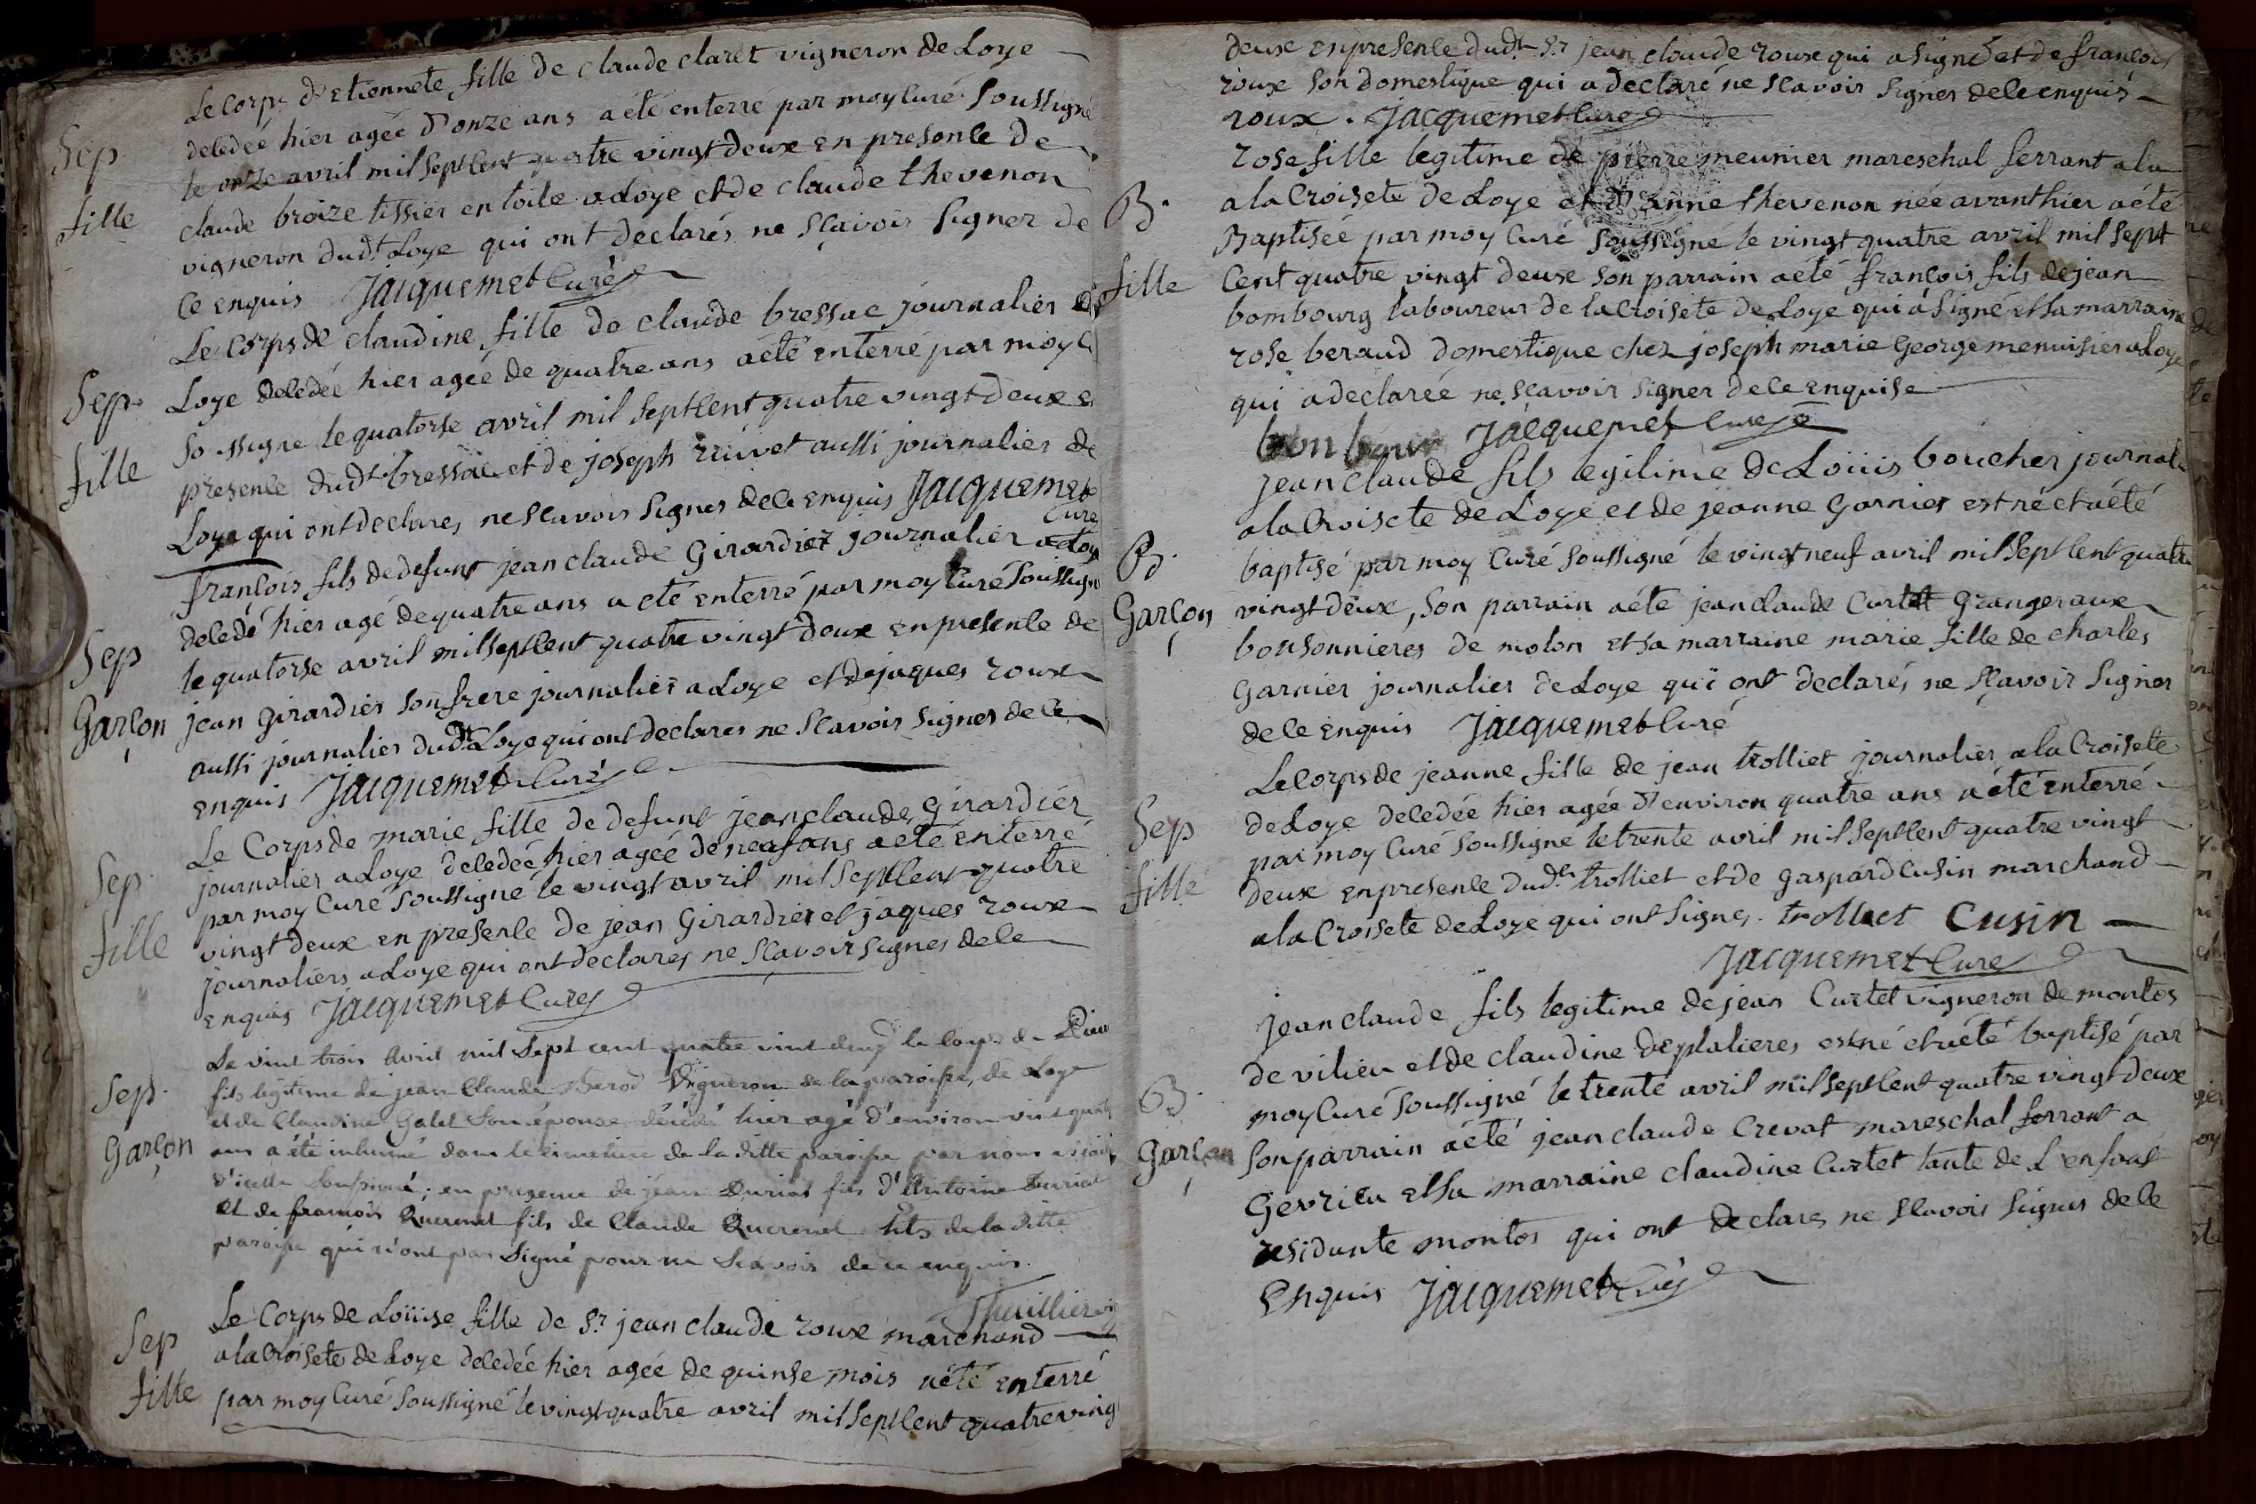 Le Corps d'Etiennete fille de claude claret vigneron de Loye
Sep
decedée hier agée d'onze ans a été enterre par moy Curé Soussigné
le onze avril mil sept Cent quatre vingt deux en presence de
fille
claude broize tissier en toile a Loye et de claude thevenon
vigneron dud.t Loye qui ont declarés ne sçavoir signer de
Ce enquis Jacquemet Curé
Le Corps de claudine fille de claude bressac journalier de
Sep.
Loye decedée hier agée de quatre ans a été enterré par moy C
soussigne le quatorse avril mil sept Cent quatre vingt deux e
fille
presence dud.t bressac et de joseph rivet aussi journalier de
Loye qui ont declares ne scavoir signer de Ce enquis Jacquemet
Curé
françois fils de defunt jean claude Girardier journalier a Loye
decedé hier agé de quatre ans a été enterré par moy Curé Soussigné
Sep
le quatorse avril mil sept Cent quatre vingt deux en presence de
Garçon
jean Girardier son frere journalier a Loye et de jaques roux
aussi journalier dud.t Loye qui ont declares ne scavoir signer de Ce
enquis Jacquemet Curé
Le Corps de marie fille de defunt jean claude Girardier
Sep.
journalier a Loye decedeé hier agée de neuf ans a été enterré
par moy Curé soussigné le vingt avril mil sept Cent quatre
fille
vingt deux en presence de jean Girardier et jaques roux
journaliers a Loye qui ont declares ne sçavoir signer de Ce
enquis Jacquemet Curé
Le vint trois Avril mil sept cent quatre vint deux le corps de
Sep.
fils legitime de jean Claude vigneron de la paroisse de Loye
et de Claudine Galet son épouse décédé hier agé d'environ vint quatre
Garçon
ans a été inhumé dans le cimetiere de la ditte paroisse par nous
d'icelle soussigné; en presence de jean Duriat fils d'Antoine Duriat
et de francois Querenet fils de Claude Querenet de la ditte
paroisse qui n'ont pas signé pour ne scavoir de ce enquis.
Thuillier
Le Corps de Loüise fille de S.r jean claude roux marchand
Sep
a la Croisete de Loye decedée hier agée de quinse mois a été enterré
fille
par moy Curé Soussigné le vingt quatre avril mil sept Cent quatre ving
deux en presence dud.t S.r jean claude roux qui a signé et de francois
roux son domestique qui a declaré ne scavoir signer de Ce enquis
roux. Jacquemet Curé
rose fille legitime de pierre meunier mareschal ferrant a la
B.
a la Croisete de Loye et d'anne thevenon née avant hier a été
Baptisée par moy Curé Soussigné le vingt quatre avril mil sept
fille
Cent quatre vingt deux son parrain a été françois fils de jean
bombourg laboureur de la Croisete de Loye qui a signé et sa marraine
rose beraud domestique chez joseph marie George menuisier a Loye
qui a declareé ne scavoir signer de Ce enquise
Jacquemet Curé
jean claude fils legitime de Loüis boucher journal
a la Croisete de Loye et de jeanne Garnier est né et a été
B.
baptisé par moy Curé soussigné le vingt neuf avril mil sept Cent quatre
Garçon
vingt deux, son parrain a été jean claude Curtet Granger aux
bousonnieres de molon et sa marraine marie fille de charles
Garnier journalier de Loye qui ont declarés ne sçavoir signer
de Ce enquis Jacquemet Curé
Le Corps de jeanne fille de jean trolliet journalier a la Croisete
Sep
de Loye decedée hier agée d'environ quatre ans a été enterré
par moy Curé Soussigné le trente avril mil sept Cent quatre vingt
fille
deux en presence dud.t trolliet et de gaspard Cusin marchand
a la Croisete de Loye qui ont signes. trolliet Cusin
Jacquemet Curé
jean claude fils legitime de jean Curtet vigneron de montos
de vilieu et de claudine deplatieres est né et a été baptisé par
B.
moy Curé Soussigné le trente avril mil sept Cent quatre vingt deux
Garçon
Son parrain a été jean claude Crevat mareschal ferrant a
Gevrieu et sa marraine claudine Curtet tante de L'enfant
residante montos qui ont declares ne scavoir signer de Ce
Enquis Jacquemet Curé